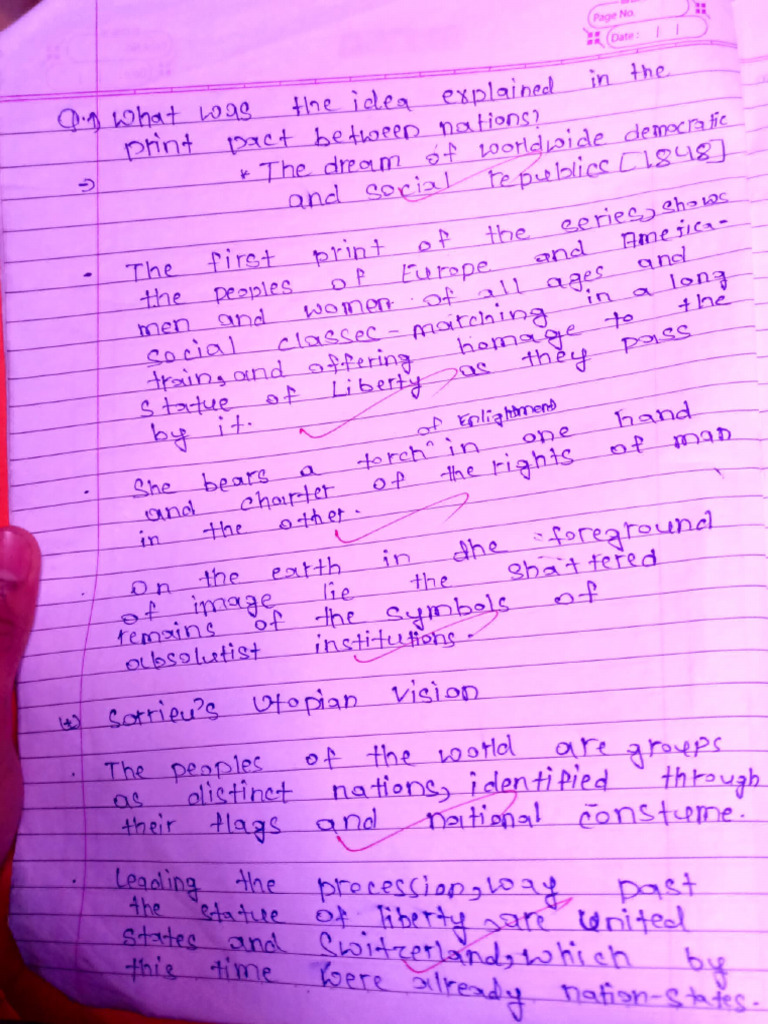 Page No.
Date: | |
Q.1) What was the idea explained in the
print pact between nations?
→ * The dream of worldwide democratic
and social republics [1848]
• The first print of the series, shows
the peoples of Europe and America-
men and women of all ages and
social classes - marching in a long
train, and offering homage to the
Statue of Liberty as they pass
by it.
of Enlightment
• She bears a torch ^ in one hand
and charter of the rights of man
in the other.
• On the earth in the foreground
of image lie the shattered
remains of the symbols of
absolutist institutions.
(*) Sorrieu's Utopian Vision
• The peoples of the world are groups
as distinct nations, identified through
their flags and national constume.
• Leading the procession, way past
the statue of liberty, are United
States and Switzerland, which by
this time were already nation-states.